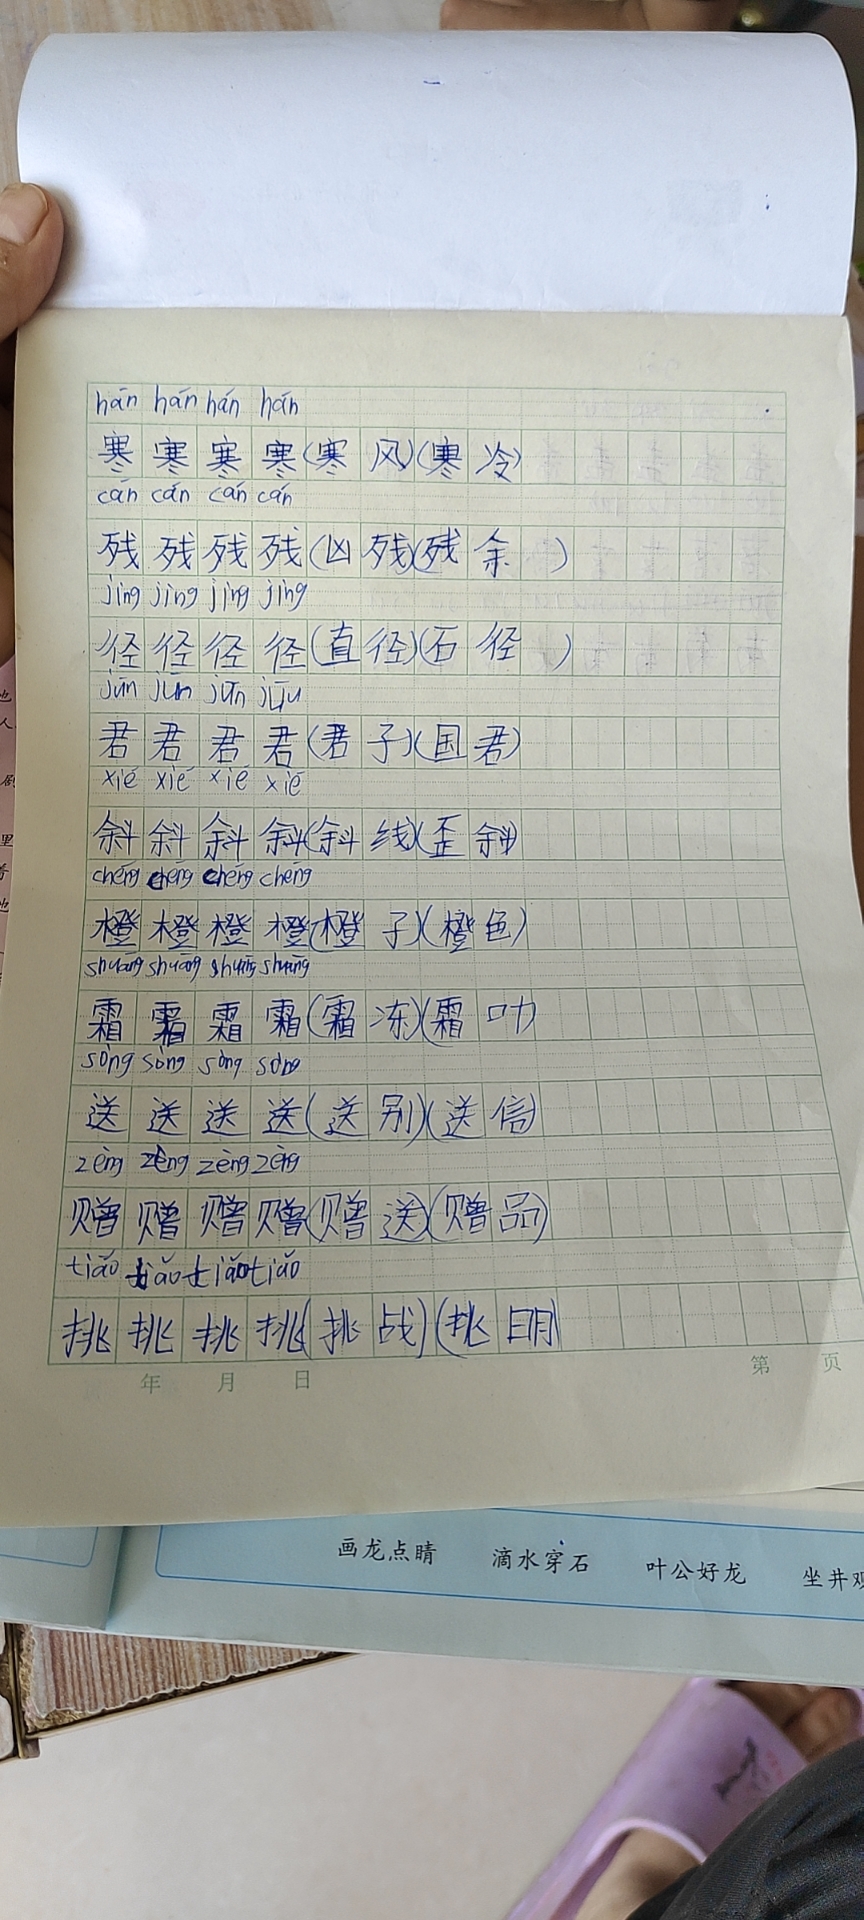 hán hán hán hán
寒 寒 寒 寒(寒 风)(寒 冷)
cán cán cán cán
残 残 残 残(凶 残)(残 余 )
jìng jìng jìng jìng
径 径 径 径(直 径)(石 径 )
jūn jūn jūn
君 君 君 君(君 子)(国 君)
xié xié xié xié
斜 斜 斜 斜(斜 线)(歪 斜)
chéng chéng chéng chéng
橙 橙 橙 橙(橙 子)(橙 色)
shuāng shuāng shuāng shuāng
霜 霜 霜 霜(霜 冻)(霜 叶)
sòng sòng sòng sòng
送 送 送 送(送 别)(送 信)
zèng zèng zèng zèng
赠 赠 赠 赠(赠 送)(赠 品)
tiǎo tiǎo tiǎo tiǎo
挑 挑 挑 挑(挑 战)(挑 明)
年 月 日 第 页
画龙点睛 滴水穿石 叶公好龙 坐井观